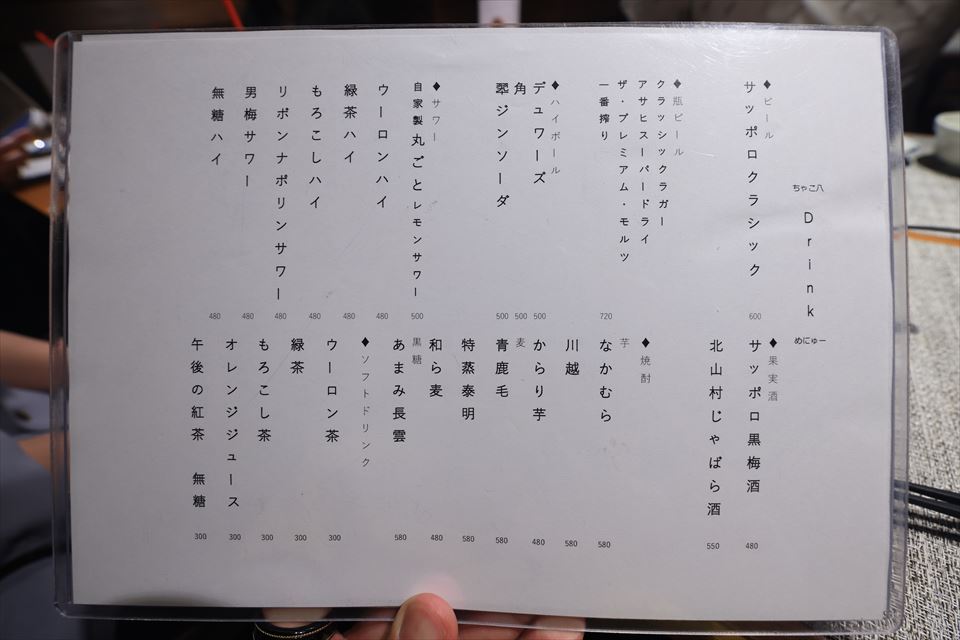 ちゃこ八
Drink
めにゅー
◆ビール
サッポロクラシック 600
◆瓶ビール
クラッシックラガー
アサヒスーパードライ
ザ・プレミアム・モルツ
一番搾り 720
◆ハイボール
デュワーズ 500
角 500
翠ジンソーダ 500
◆サワー
自家製丸ごとレモンサワー 500
ウーロンハイ 480
緑茶ハイ 480
もろこしハイ 480
リボンナポリンサワー 480
男梅サワー 480
無糖ハイ 480
◆果実酒
サッポロ黒梅酒 480
北山村じゃばら酒 550
◆焼酎
芋
なかむら 580
川越 580
からり芋 480
麦
青鹿毛 580
特蒸泰明 580
和ら麦 480
黒糖
あまみ長雲 580
◆ソフトドリンク
ウーロン茶 300
緑茶 300
もろこし茶 300
オレンジジュース 300
午後の紅茶 無糖 300